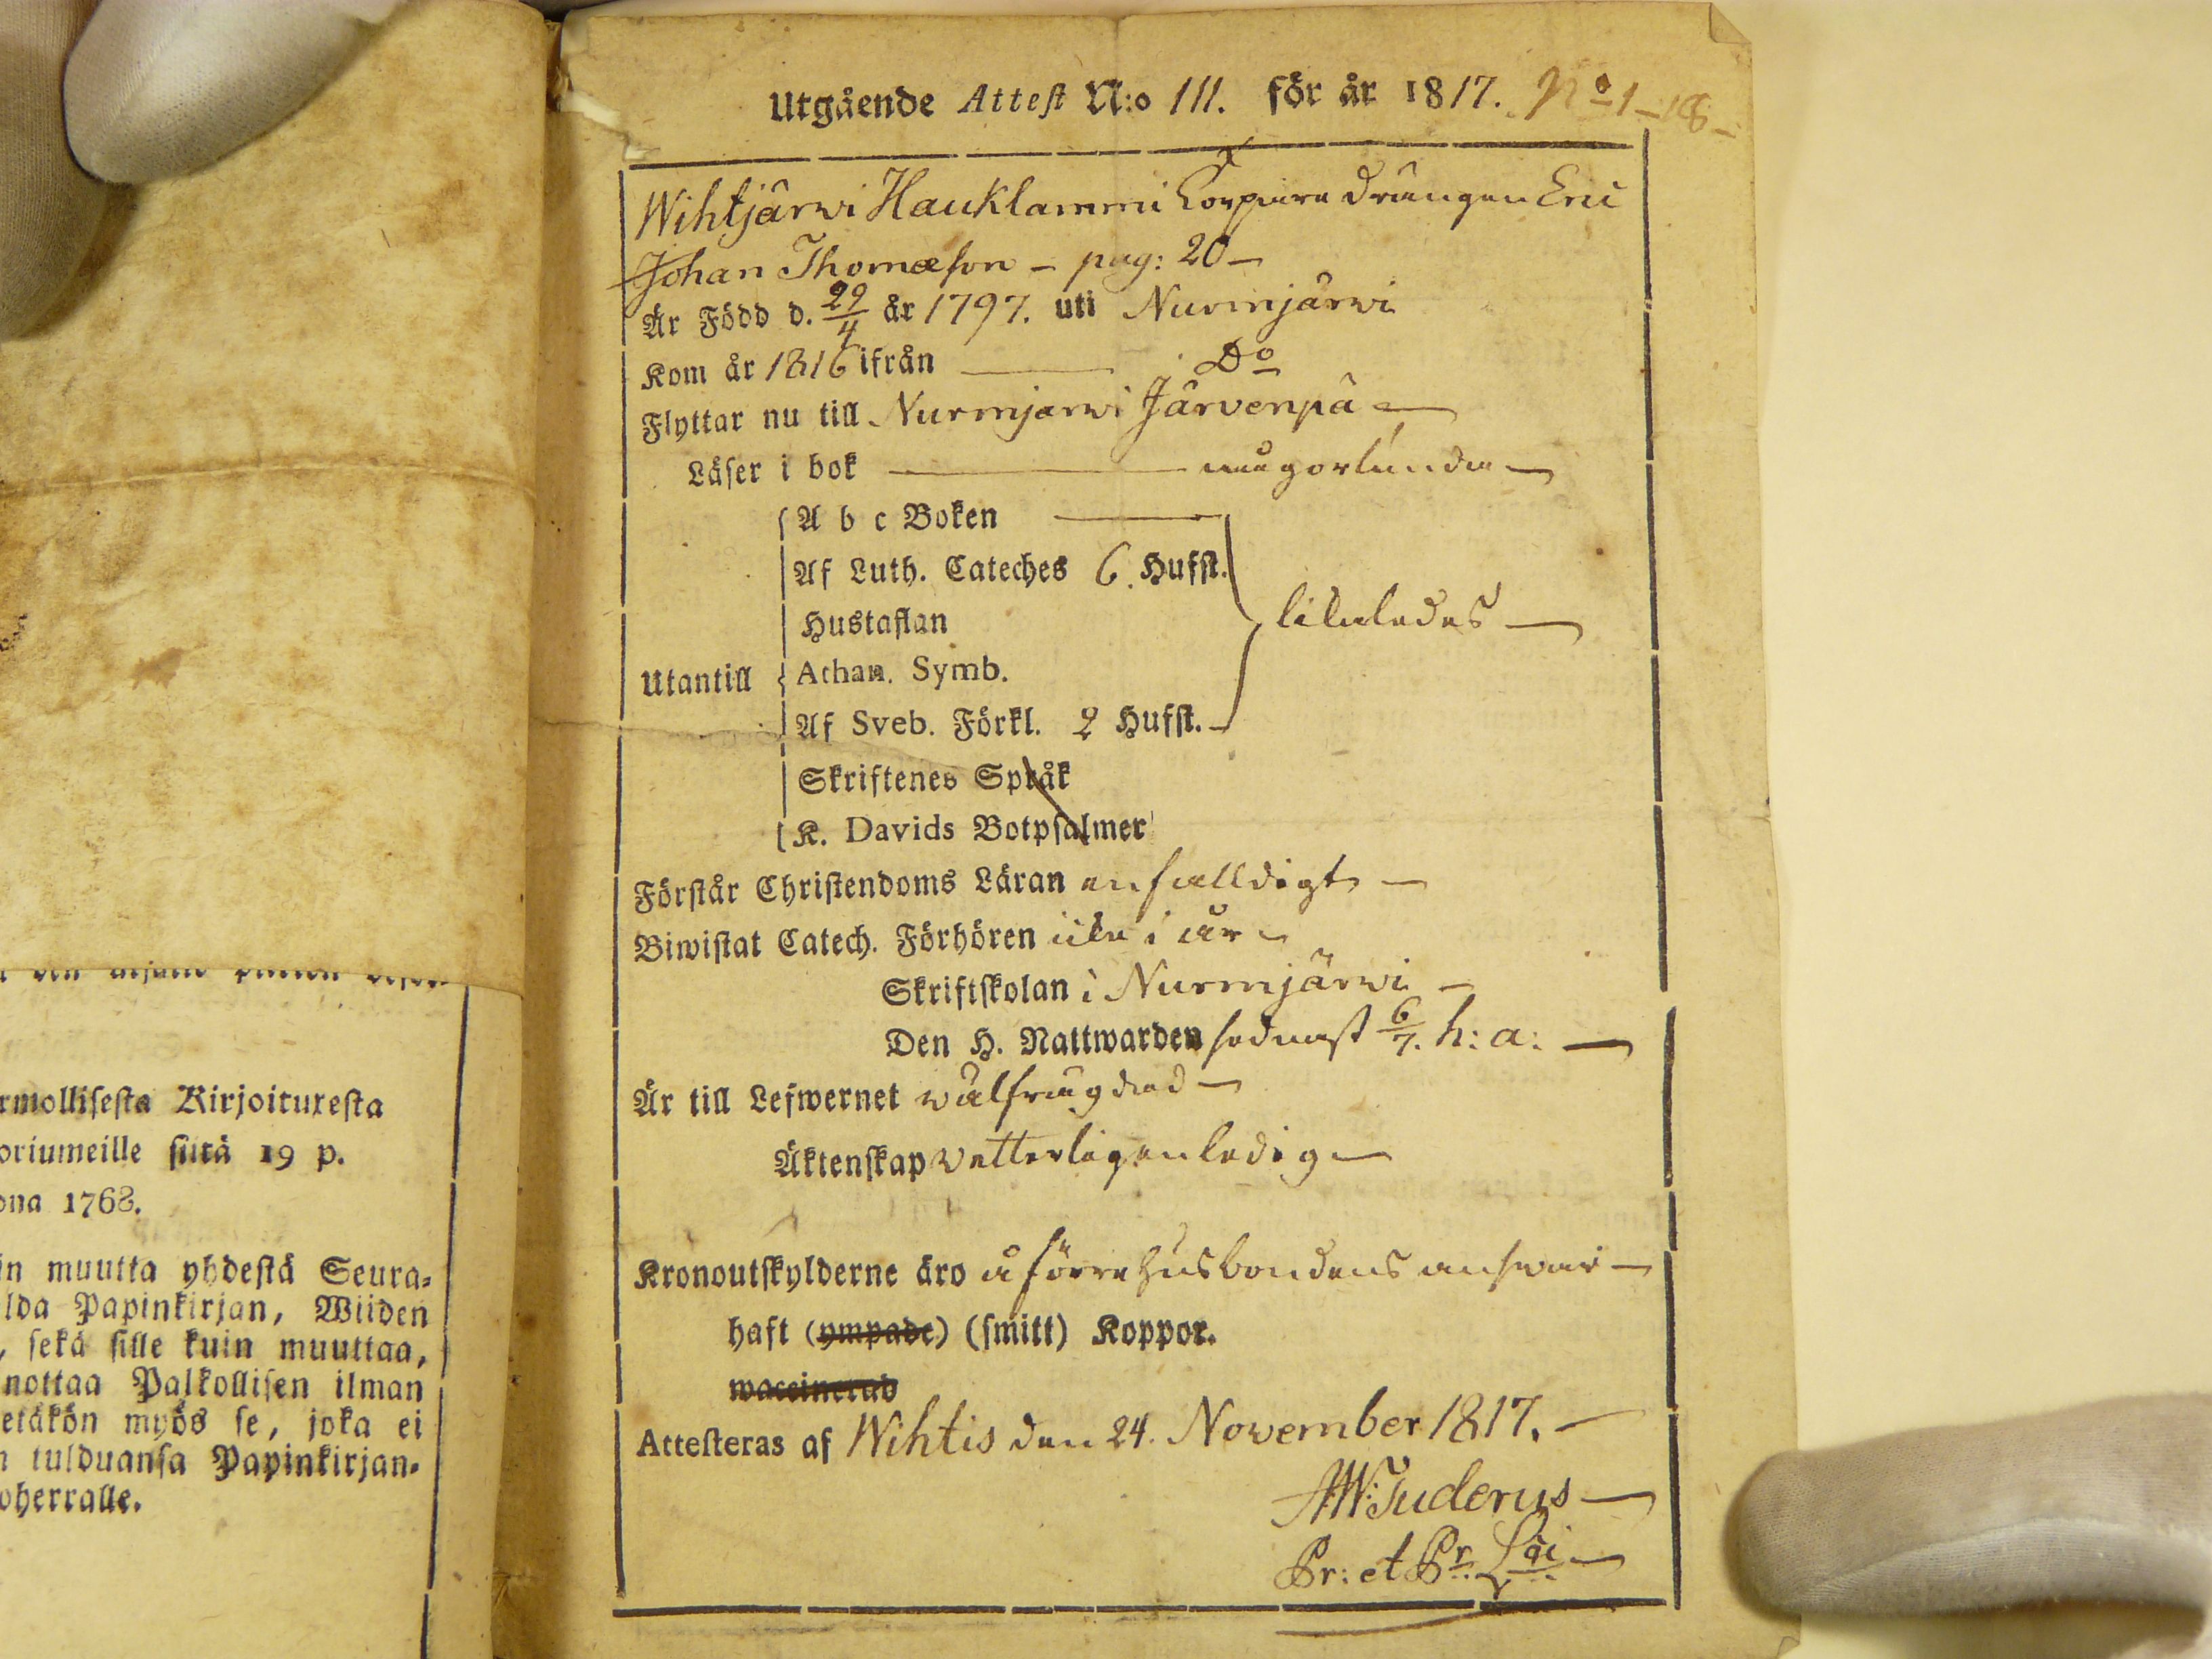 Utgående Attest N:o 111. för år 1817. No 1 - 18 -
Wihtjärwi Hauklammi Torpare Drängen Eric
Johan Thomæson - pag: 20 -
Är Född d. 29/4 år 1797. uti Nurmjärwi
Kom år 1816 ifrån Do
Flyttar nu till Nurmjärwi Järvenpä
Läser i bok någorlunda
A b c Boken
Af Luth. Cateches 6. Hufst.
Hustaflan likaledes
Utantill Athan. Symb.
Af Sveb. Förkl. 2 Hufst.
Skriftenes Språk
K. Davids Botpsalmer
Förstår Christendoms Läran enfalldigt
Biwistat Catech. Förhören icke i år
Skriftskolan i Nurmjärwi
Den H. Nattwarden sednast 6/7. h: a:
Är till Lefwernet wälfrägdad
Äktenskap wetterligen ledig
Kronoutskylderne äro å förra husbondens answar
haft (ympade) (smitt) Koppor.
waccinerad
Attesteras af Wihtis den 24. November 1817.
AW: Tuderus
Pr: et Pr. Lci
rmollisesta Kirjoituxesta
oriumeille siitä 19 p.
ona 1768.
in muutta yhdestä Seura-
lda Papinkirjan, Wiiden
, sekä sille kuin muuttaa,
nottaa Palkollisen ilman
etäkön myös se, joka ei
n tulduansa Papinkirjan-
oherralle.